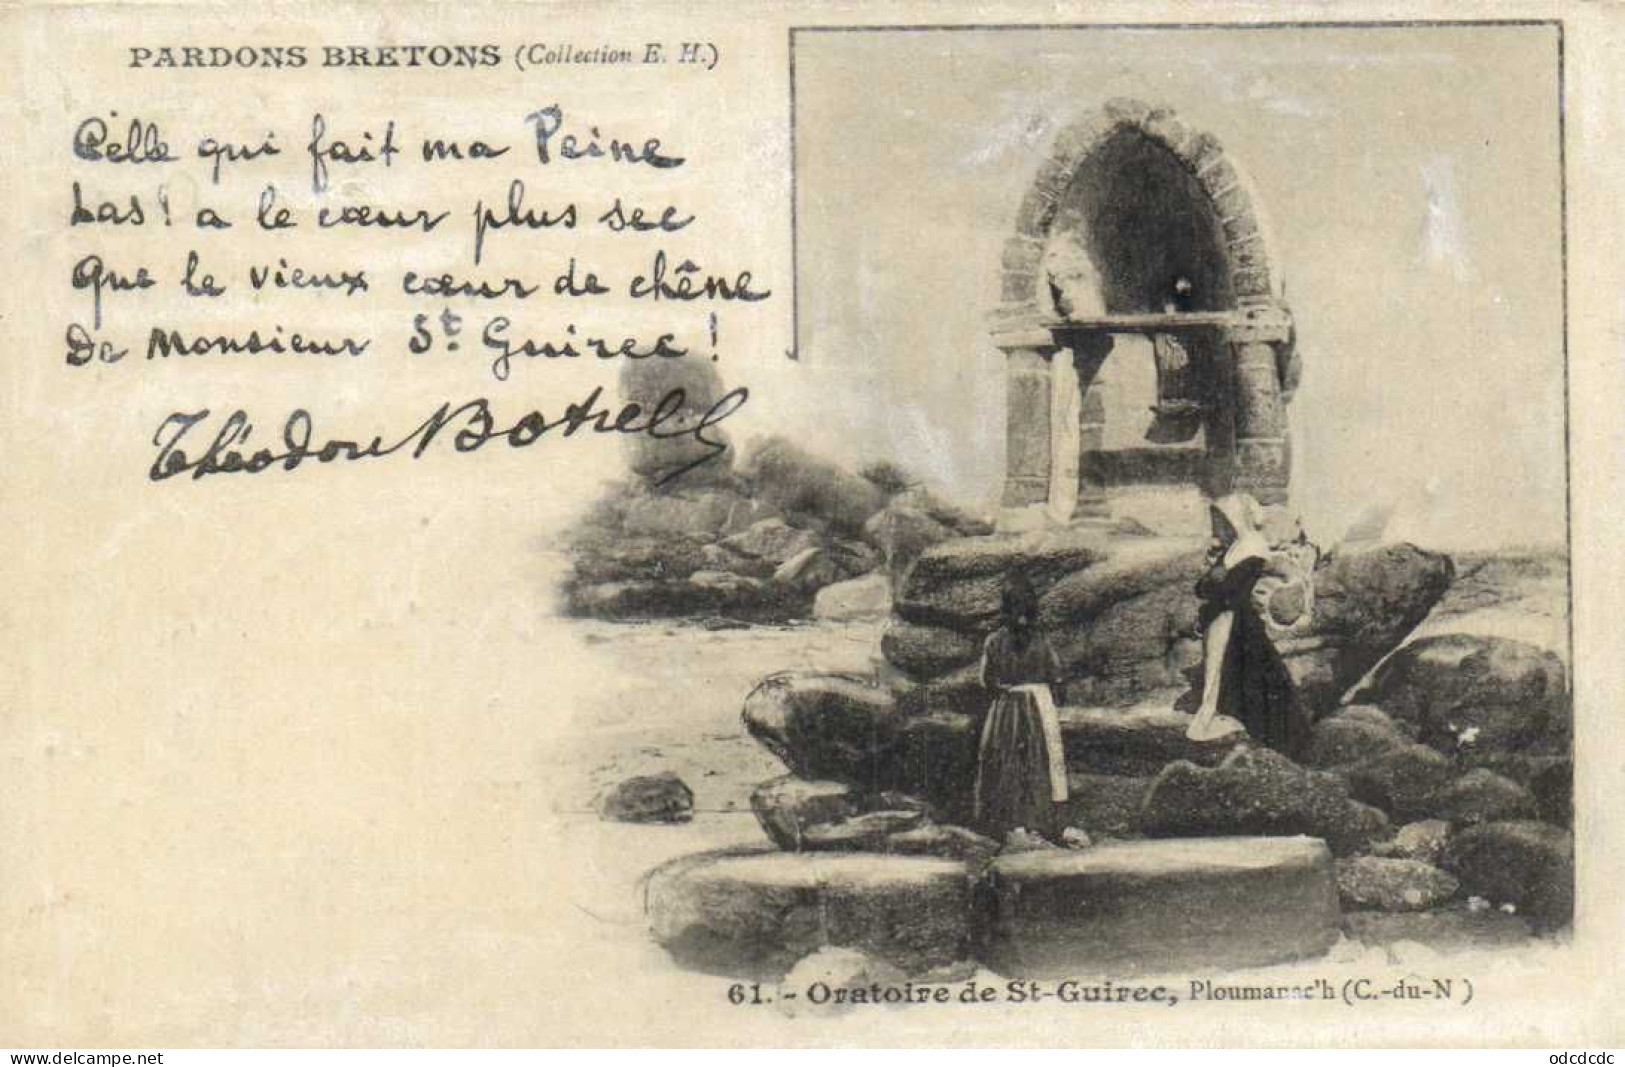 PARDONS BRETONS (Collection E. H.)
Celle qui fait ma Peine
Las! a le cœur plus sec
Que le vieux cœur de chêne
De Monsieur St. Guirec!
Théodore Botrel
61. - Oratoire de St-Guirec, Ploumanac'h (C.-du-N )
https://www.delcampe.net
odcdcdc